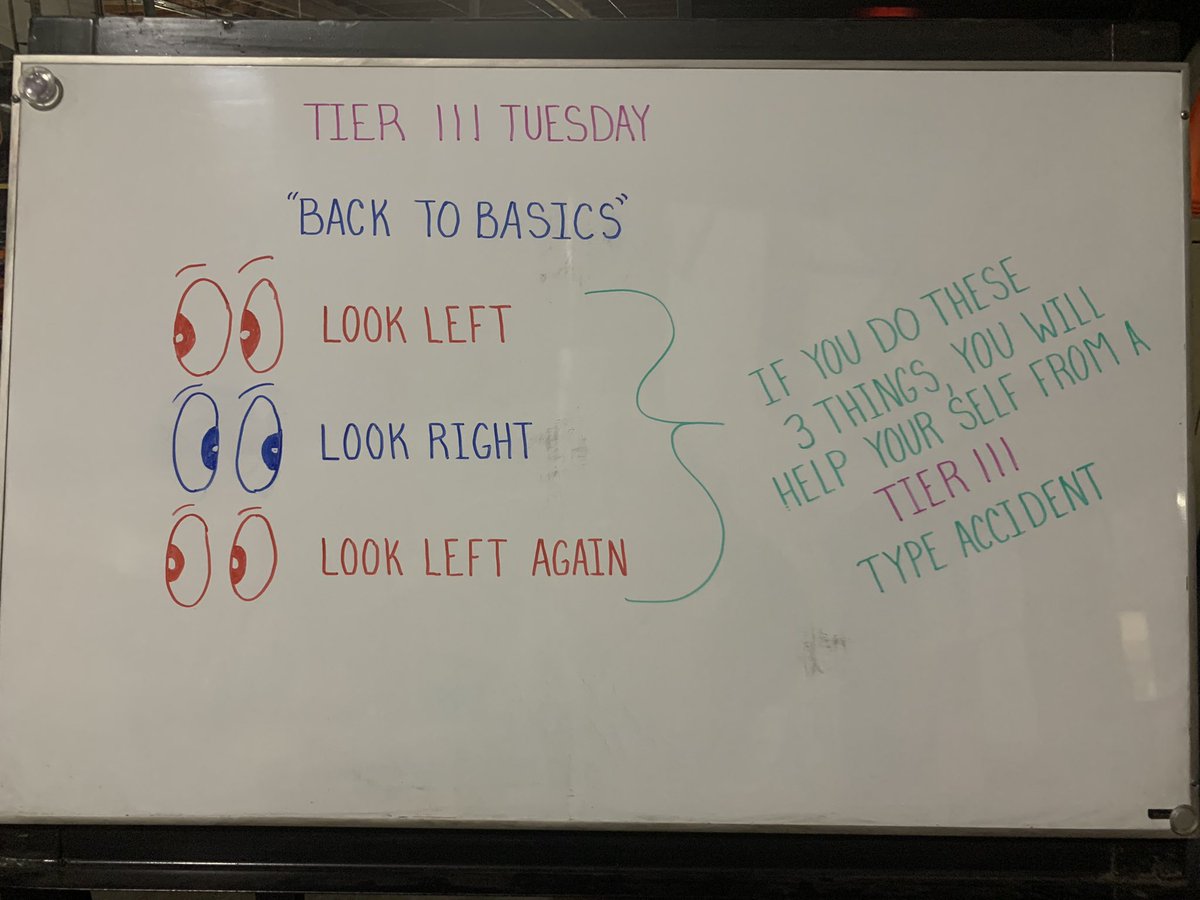 TIER III TUESDAY
"BACK TO BASICS"
LOOK LEFT
LOOK RIGHT
LOOK LEFT AGAIN
IF YOU DO THESE
3 THINGS, YOU WILL
HELP YOUR SELF FROM A
TIER III
TYPE ACCIDENT